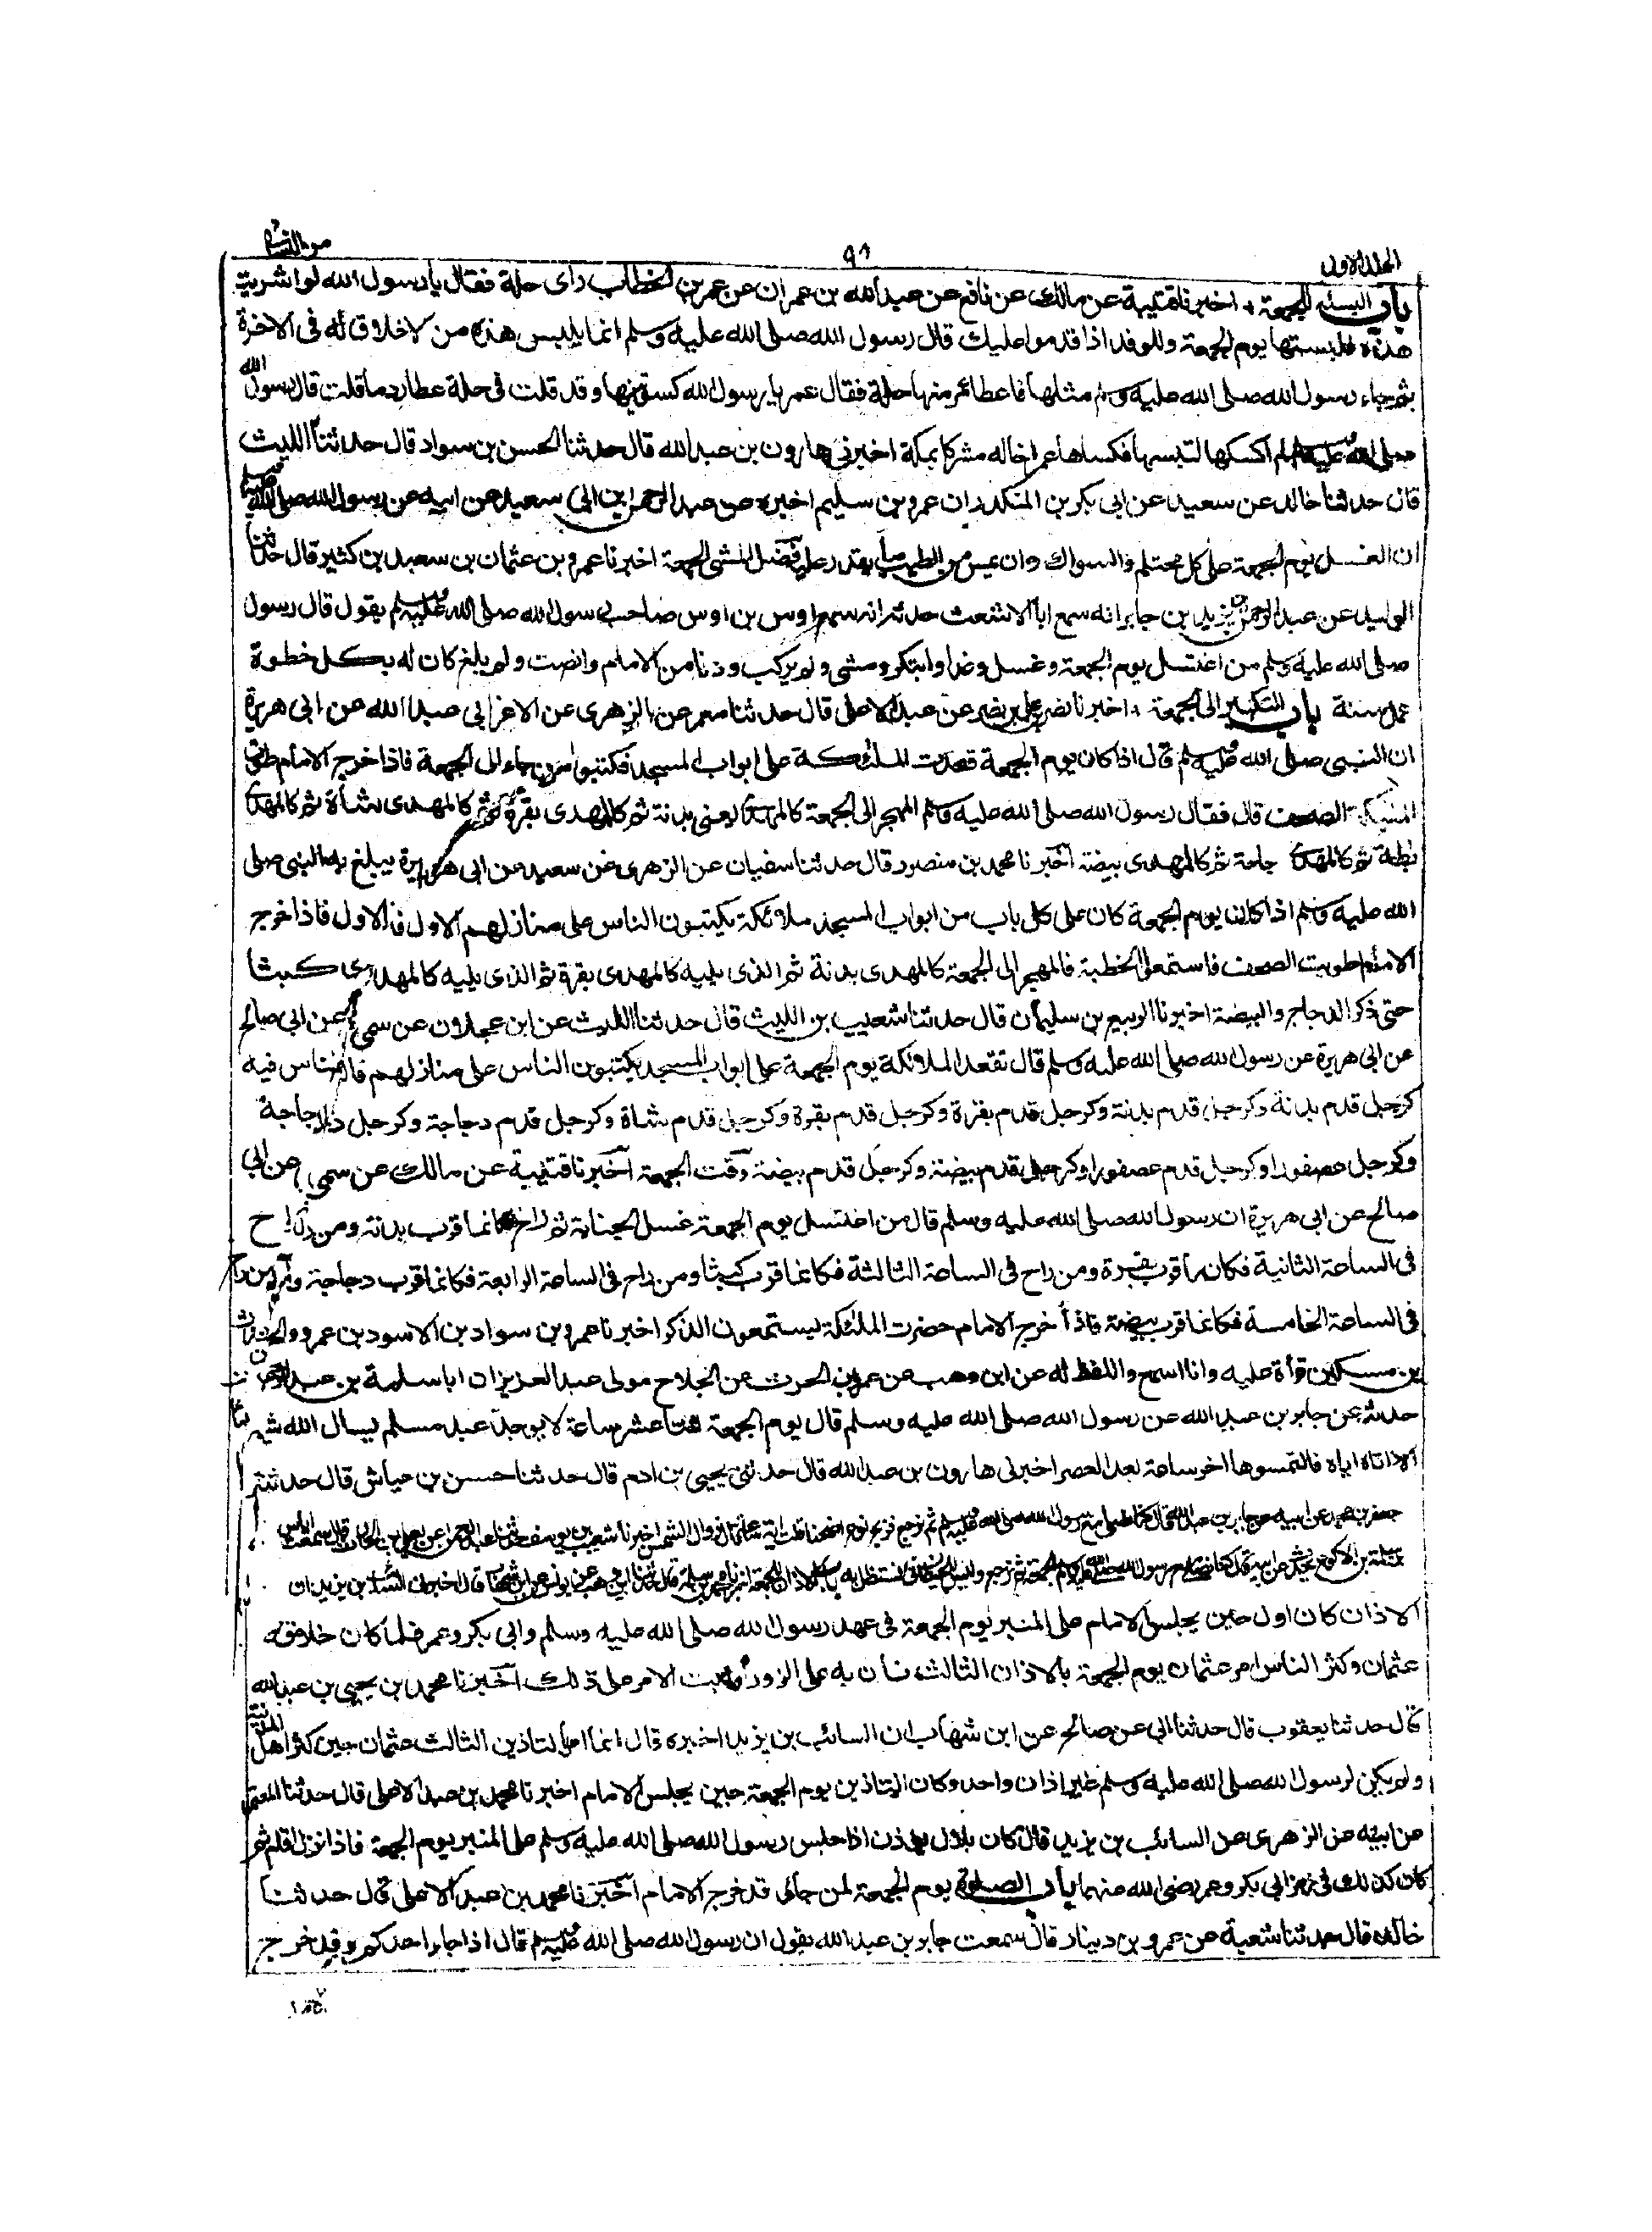 المجلد الاول
٩٦
من النسائى
باب اللبسة للجمعة ، اخبرنا قتيبة عن مالك عن نافع عن عبد الله بن عمر ان عمر بن الخطاب راى حلة فقال يا رسول الله لو اشتريت
هذه فلبستها يوم الجمعة وللوفد اذا قدموا عليك قال رسول الله صلى الله عليه وسلم انما يلبس هذه من لا خلاق له فى الاخرة
ثم جاء رسول الله صلى الله عليه وسلم مثلها فاعطا عمر منها حلة فقال عمر يا رسول الله كسوتنيها وقد قلت فى حلة عطارد ما قلت قال رسول الله
صلى الله عليه وسلم لم اكسكها لتلبسها فكساها عمر اخا له مشركا بمكة اخبرنى هارون بن عبد الله قال حدثنا الحسن بن سواد قال حدثنا الليث
قال حدثنا خالد عن سعيد عن ابى بكر بن المنكدر ان عمرو بن سليم اخبره عن عبد الرحمن ابن ابى سعيد عن ابيه عن رسول الله صلى الله عليه وسلم
ان الغسل يوم الجمعة على كل محتلم والسواك وان يمس من الطيب ما يقدر عليه فضل المشى الجمعة اخبرنا عمرو بن عثمان بن سعيد بن كثير قال حدثنا
الوليد عن عبد الرحمن بن يزيد بن جابر انه سمع ابا الاشعث حدثه انه سمع اوس بن اوس صاحب رسول الله صلى الله عليه وسلم يقول قال رسول
صلى الله عليه وسلم من اغتسل يوم الجمعة وغسل وغدا وابتكر ومشى ولم يركب ودنا من الامام وانصت ولم يلغ كان له بكل خطوة
عمل سنة باب التكبير الى الجمعة ، اخبرنا نصر بن على بن نصر عن عبد الاعلى قال حدثنا معمر عن الزهرى عن الاغر ابى عبد الله عن ابى هريرة
ان النبى صلى الله عليه وسلم قال اذا كان يوم الجمعة قعدت الملئكة على ابواب المسجد فكتبوا من جاء الى الجمعة فاذا خرج الامام طوت
الملئكة الصحف قال فقال رسول الله صلى الله عليه وسلم المهجر الى الجمعة كالمهدى يعنى بدنة ثم كالمهدى بقرة ثم كالمهدى شاة ثم كالمهدى
بطة ثم كالمهدى جاجة ثم كالمهدى بيضة اخبرنا محمد بن منصور قال حدثنا سفيان عن الزهرى عن سعيد عن ابى هريرة يبلغ به النبى صلى
الله عليه وسلم اذا كان يوم الجمعة كان على كل باب من ابواب المسجد ملائكة يكتبون الناس على منازلهم الاول فالاول فاذا خرج
الامام طويت الصحف فاستمعوا الخطبة فالمهجر الى الجمعة كالمهدى بدنة ثم الذى يليه كالمهدى بقرة ثم الذى يليه كالمهدى كبشا
حتى ذكر الدجاج والبيضة اخبرنا الربيع بن سليمان قال حدثنا شعيب بن الليث قال حدثنا الليث عن ابن عجلان عن سمى عن ابى صالح
عن ابى هريرة عن رسول الله صلى الله عليه وسلم قال تقعد الملائكة يوم الجمعة على ابواب المسجد يكتبون الناس على منازلهم فالناس فيه
كرجل قدم بدنة وكرجل قدم بدنة وكرجل قدم بقرة وكرجل قدم بقرة وكرجل قدم شاة وكرجل قدم دجاجة وكرجل دجاجة
وكرجل عصفورا وكرجل قدم عصفورا وكرجل قدم بيضة وكرجل قدم بيضة وقت الجمعة اخبرنا قتيبة عن مالك عن سمى عن ابى
صالح عن ابى هريرة ان رسول الله صلى الله عليه وسلم قال من اغتسل يوم الجمعة غسل الجنابة ثم راح فكانما قرب بدنة ومن راح
فى الساعة الثانية فكانما قرب بقرة ومن راح فى الساعة الثالثة فكانما قرب كبشا ومن راح فى الساعة الرابعة فكانما قرب دجاجة ومن راح
فى الساعة الخامسة فكانما قرب بيضة فاذا خرج الامام حضرت الملئكة يستمعون الذكر اخبرنا عمرو بن سواد بن الاسود بن عمرو والحارث
بن مسكين قرأة عليه وانا اسمع واللفظ له عن ابن وهب عن عمرو بن الحرث عن الجلاح مولى عبد العزيز ان ابا سلمة بن عبد الرحمن
حدثه عن جابر بن عبد الله عن رسول الله صلى الله عليه وسلم قال يوم الجمعة اثنتا عشر ساعة لا يوجد عبد مسلم يسال الله شيئا
الا اتاه اياه فالتمسوها اخر ساعة بعد العصر اخبرنى هارون بن عبد الله قال حدثنى يحيى بن ادم قال حدثنا حسن بن عياش قال حدثنا
جعفر بن محمد عن ابيه عن جابر بن عبد الله قال كنا نصلى مع رسول الله صلى الله عليه وسلم ثم نرجع فنريح نواضحنا قلت اية ساعة قال زوال الشمس اخبرنا شعيب بن يوسف
الاذان كان اول حين يجلس الامام على المنبر يوم الجمعة فى عهد رسول الله صلى الله عليه وسلم وابى بكر وعمر فلما كان خلافة
عثمان وكثر الناس امر عثمان يوم الجمعة بالاذان الثالث فاذن به على الزوراء فثبت الامر على ذلك اخبرنا محمد بن يحيى بن عبد الله
قال حدثنا يعقوب قال حدثنا ابى عن صالح عن ابن شهاب ان السائب بن يزيد اخبره قال انما امر بالتاذين الثالث عثمان حين كثر اهل المدينة
ولم يكن لرسول الله صلى الله عليه وسلم غير اذان واحد وكان التاذين يوم الجمعة حين يجلس الامام اخبرنا محمد بن عبد الاعلى قال حدثنا المعتمر
عن ابيه عن الزهرى عن السائب بن يزيد قال كان بلال يوذن اذا جلس رسول الله صلى الله عليه وسلم على المنبر يوم الجمعة فاذا نزل اقام ثم
كان كذلك فى زمن ابى بكر وعمر رضى الله عنهما باب الصلوة يوم الجمعة لمن جاء و قد خرج الامام اخبرنا محمد بن عبد الاعلى قال حدثنا
خالد قال حدثنا شعبة عن عمرو بن دينار قال سمعت جابر بن عبد الله يقول ان رسول الله صلى الله عليه وسلم قال اذا جاء احدكم وقد خرج